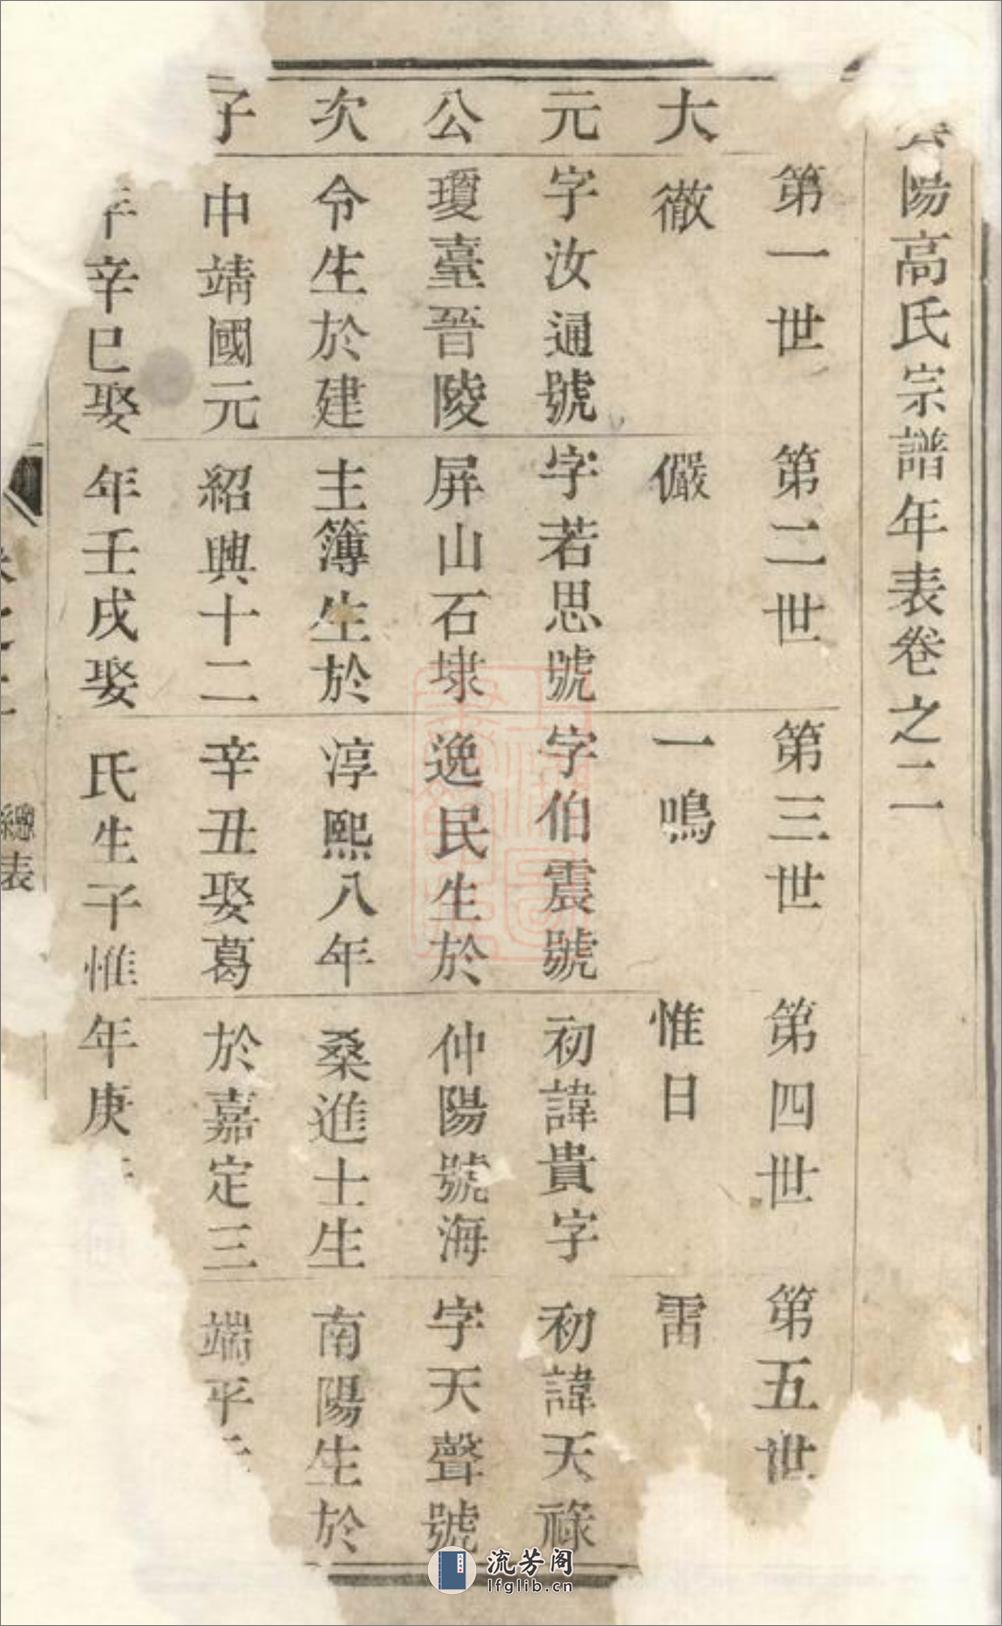 陽高氏宗譜年表卷之二
第一世 第二世 第三世 第四世 第五世
大 徹 儼 一鳴 惟日 雷
元 字汝通號 字若思號 字伯震號 初諱貴字 初諱天祿
公 瓊臺晉陵 屏山石埭 逸民生於 仲陽號海 字天聲號
次 令生於建 主簿生於 淳熙八年 桑進士生 南陽生於
子 中靖國元 紹興十二 辛丑娶葛 於嘉定三 端平
年辛巳娶 年壬戌娶 氏生子惟 年庚
總表
流芳阁
lfglib.cn